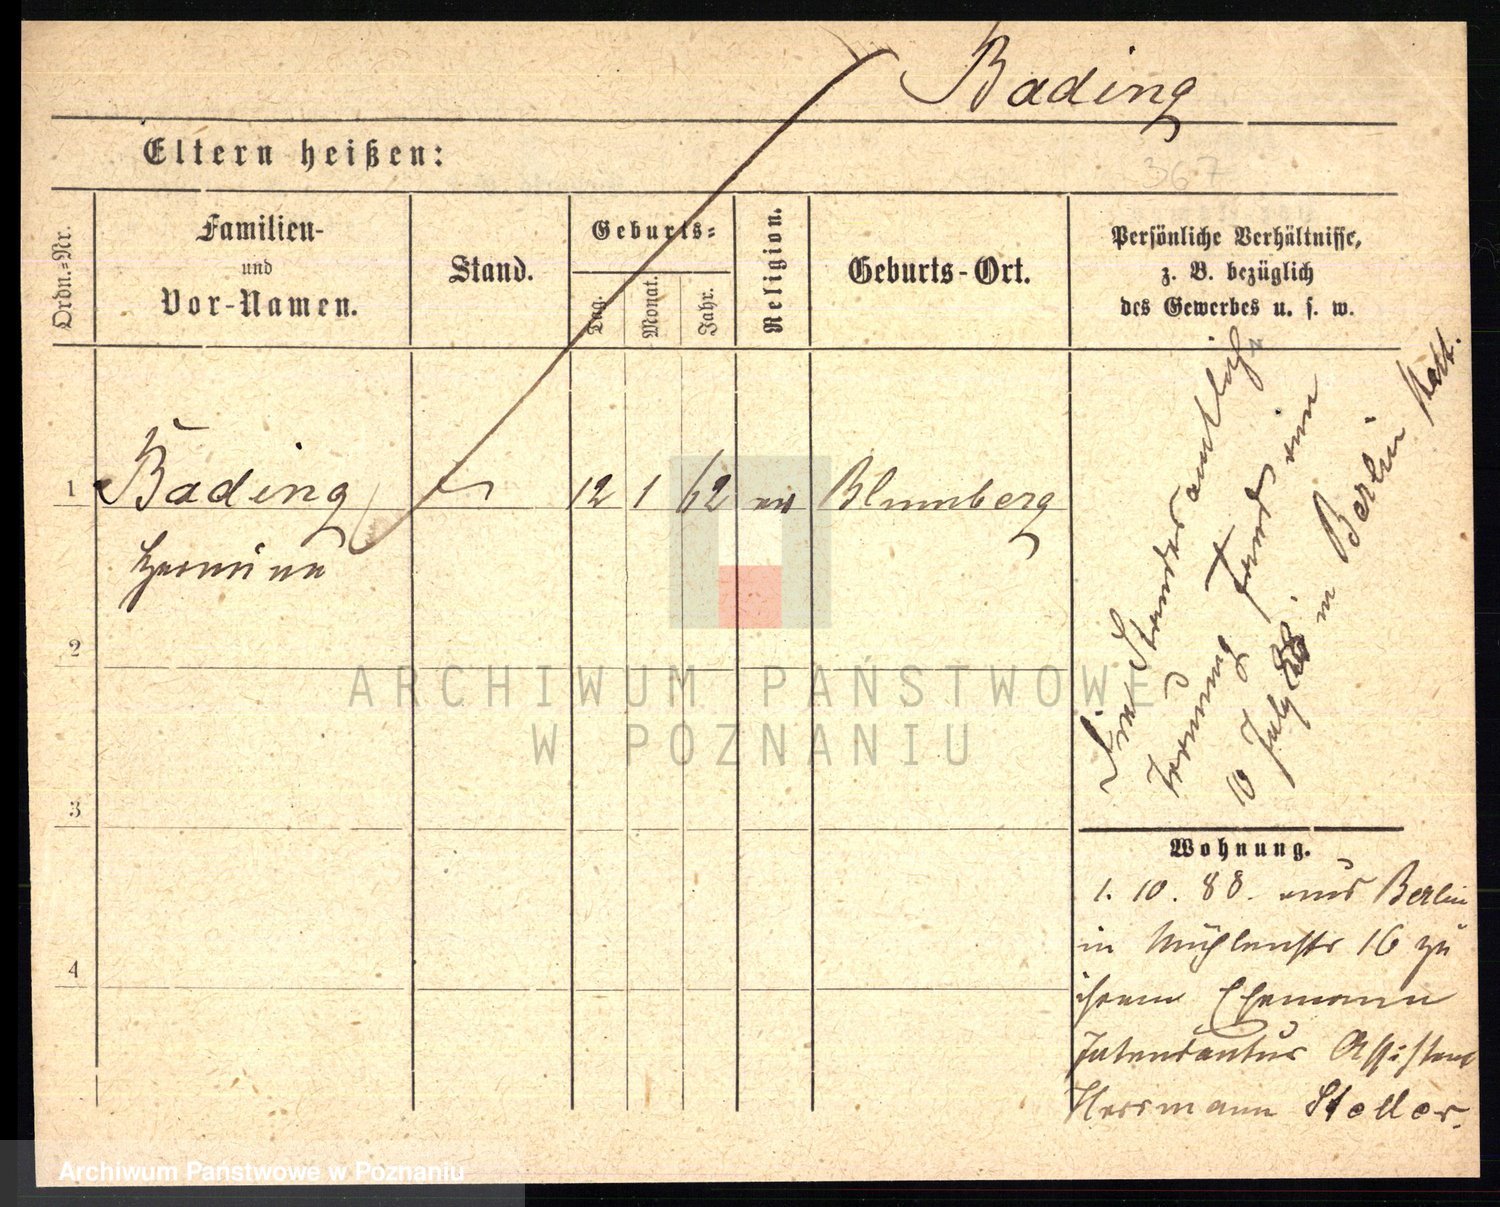 Bading
367
Eltern heißen:
Ordn.-Nr.
Familien-
und
Vor-Namen.
Stand.
Geburts-
Tag.
Monat.
Jahr.
Religion.
Geburts-Ort.
Persönliche Verhältnisse,
z. B. bezüglich
des Gewerbes u. s. w.
1 Bading 12 1 62 ev Blumberg
Hermine
2
3
4
Die Standesamtlich
Trennung fand am
10 July 88 in Berlin statt.
Wohnung.
1. 10. 88. aus Berlin
in Mühlenstr 16 zu
ihrem Ehemann
Intendantur Assistent
Herrmann Steller.
ARCHIWUM PAŃSTWOWE
W POZNANIU
Archiwum Państwowe w Poznaniu